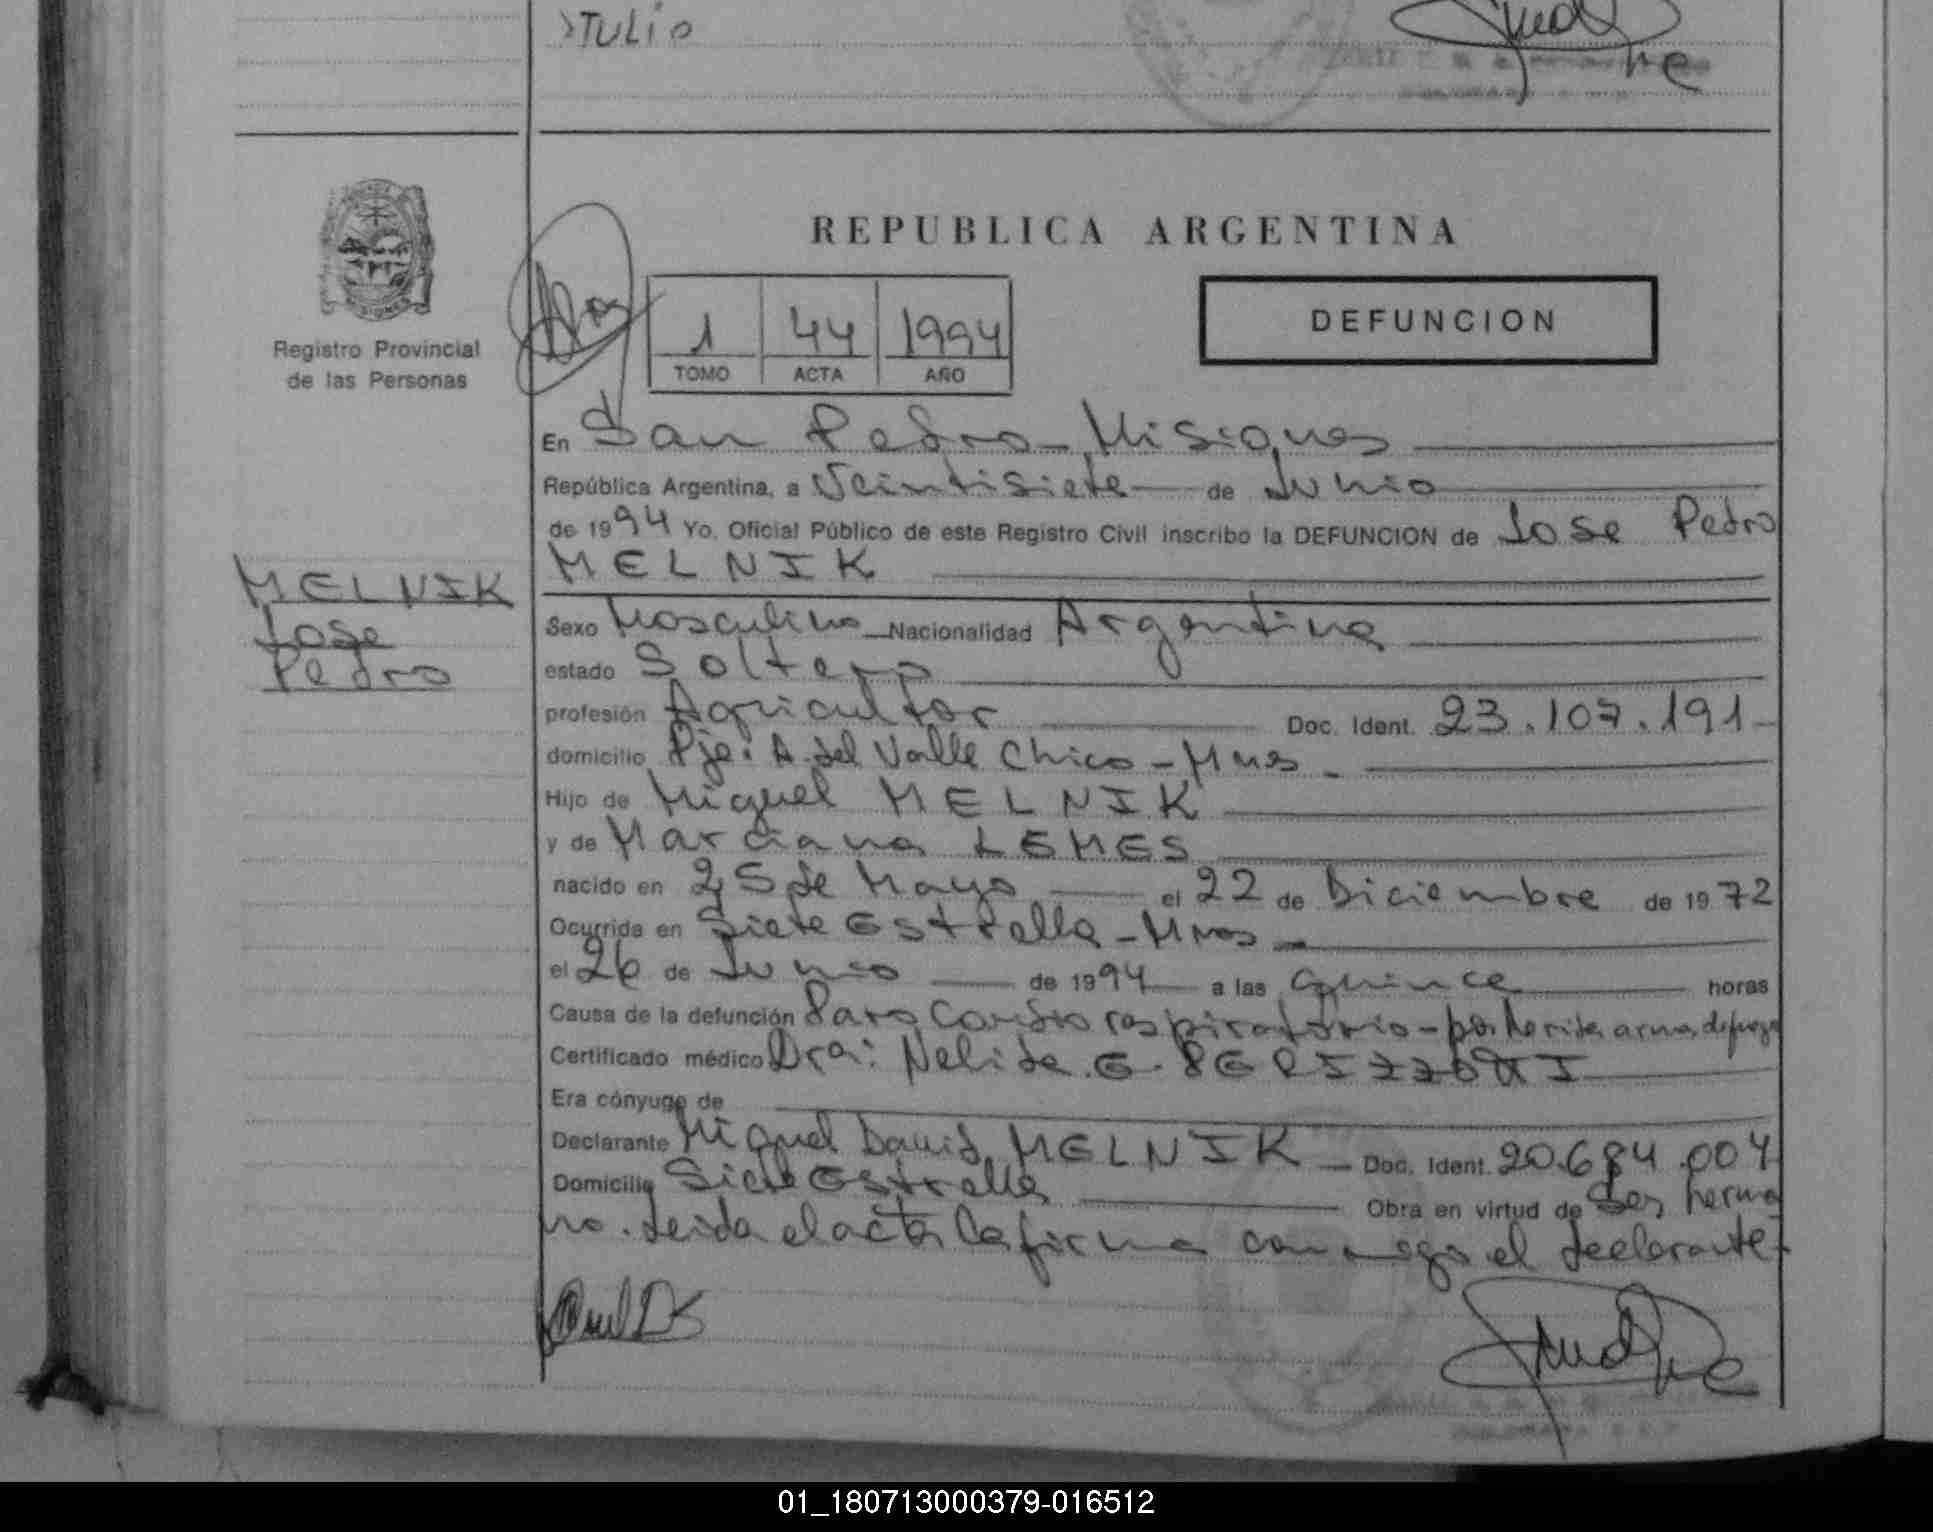 TULIO
REPUBLICA ARGENTINA
DEFUNCION
1 44 1994
TOMO ACTA AÑO
Registro Provincial
de las Personas
En San Pedro - Misiones
República Argentina, a Veintisiete de Junio
de 1994 Yo, Oficial Público de este Registro Civil inscribo la DEFUNCION de Jose Pedro
MELNIK
MELNIK
Jose
Pedro
Sexo Masculino Nacionalidad Argentina
estado Soltero
profesión Agricultor Doc. Ident. 23.107.191
domicilio Pje. A. del Valle Chico - Mnes
Hijo de Miguel MELNIK
y de Marciana LEMES
nacido en 25 de Mayo el 22 de Diciembre de 1972
Ocurrida en Siete Estrella - Mnes
el 26 de Junio de 1994 a las Quince horas
Causa de la defunción Paro Cardio respiratorio - por herida arma de fuego
Certificado médico Dra: Nelida G.
Era cónyuge de
Declarante Miguel David MELNIK Doc. Ident. 20.684.004
Domicilio Siete Estrella Obra en virtud de Ser herma
no. Leida el acta la firma conmigo el declarante
01_180713000379-016512